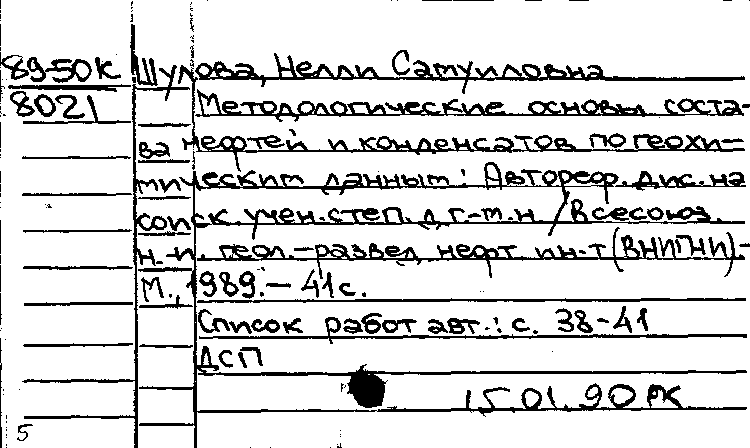 89-50К Шулова, Нелли Самуиловна
8021 Методологические основы соста-
ва нефтей и конденсатов по геохи-
мическим данным: Автореф. дис. на
соиск. учен. степ. д. г.-м. н. / Всесоюз.
н.-и. геол.-развед. нефт. ин-т (ВНИГНИ).-
М., 1989. - 41 с.
Список работ авт.: с. 38-41
ДСП
15.01.90 РК
5